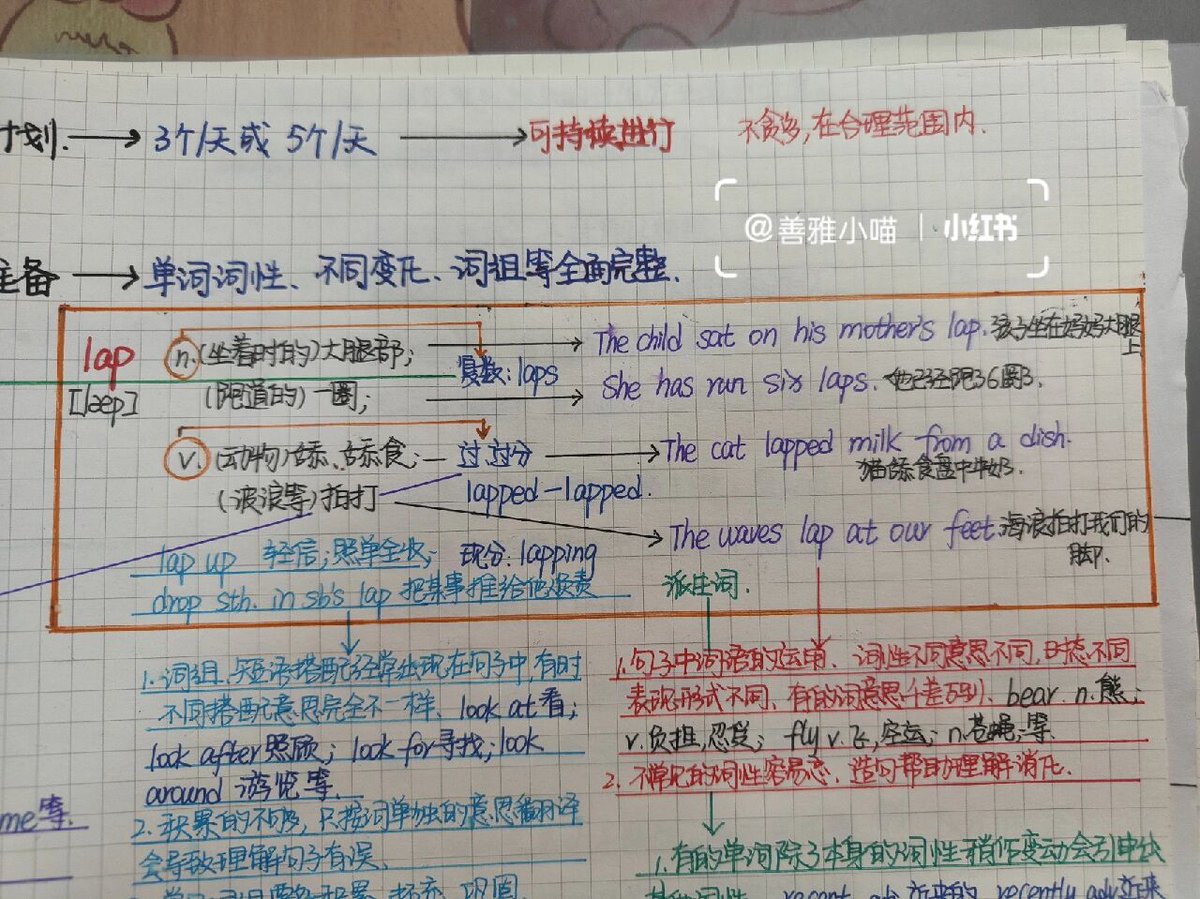 计划. → 3个/天或 5个/天 → 可持续进行 不贪多,在合理范围内.
@善雅小喵 | 小红书
准备 → 单词词性、不同变化、词组等全面完整.
lap n.(坐着时的)大腿部; The child sat on his mother's lap. 孩子坐在妈妈大腿上
[læp] (跑道的)一圈; 复数:laps She has run six laps. 她已经跑了6圈了.
v.(动物)舔、舔食; 过.过分 The cat lapped milk from a dish.
猫舔食盘中牛奶.
(波浪等)拍打 lapped-lapped.
The waves lap at our feet. 海浪拍打我们的脚.
lap up 轻信;照单全收; 现分:lapping
drop sth. in sb's lap 把某事推给他负责 派生词.
1.词组、短语搭配经常出现在句子中,有时
不同搭配意思完全不一样、look at看;
look after照顾; look for寻找; look
around 游览等.
2.积累的不够,只按词单独的意思翻译
会导致理解句子有误.
1.句子中词语的运用、词性不同意思不同,时态不同
表现形式不同、有的词意思千差万别、bear. n.熊;
v.负担,忍受; fly v.飞,空运; n.苍蝇;等.
2.不常见的词性容易忘、造句帮助理解消化.
me等.
1.有的单词除了本身的词性稍作变动会引申出
recent adj近来的 recently adv近来